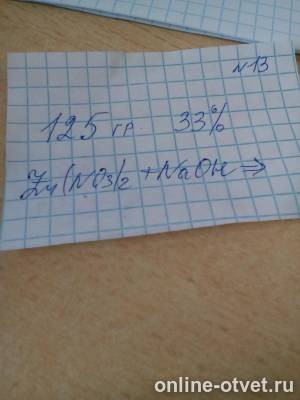 №13
125 гр. 33%
Zn(NO3)2 + NaOH ⇒
online-otvet.ru